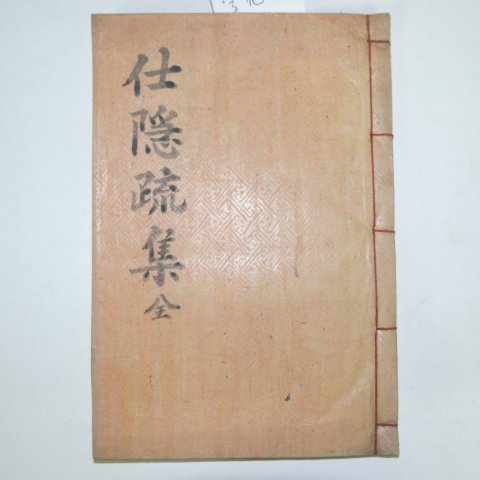 仕隠疏集全